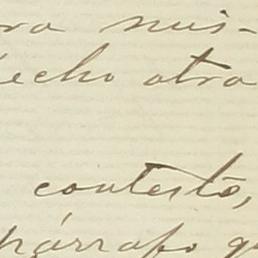 ra mis-
echo otra
contestó,
párrafo q